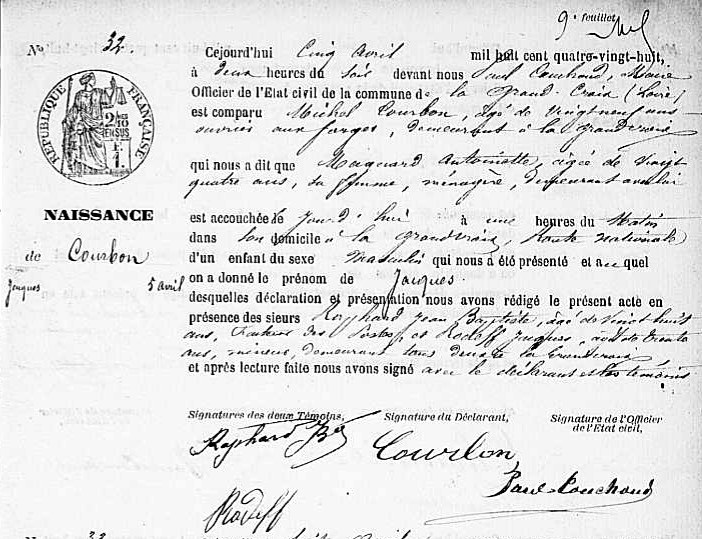 9e feuillet
No 32.
Cejourd'hui Cinq Avril mil huit cent quatre-vingt-huit,
à deux heures du soir devant nous Paul Couchoud, Maire
Officier de l'Etat civil de la commune de la Grand-Croix (Loire)
est comparu Michel Courbon, âgé de vingt neuf ans
ouvrier aux forges, demeurant à la Grandcroix
qui nous a dit que Magnard Antoinette, âgée de vingt
quatre ans, sa femme, ménagère, demeurant avec lui
est accouchée le jourd'hui à une heures du Matin
dans son domicile à la Grandcroix, Route Nationale
d'un enfant du sexe Masculin qui nous a été présenté et auquel
on a donné le prénom de Jacques
desquelles déclaration et présentation nous avons rédigé le présent acte en
présence des sieurs Rayphard Jean Baptiste, âgé de vingt huit
ans, Facteur des Postes, et Rodeff Jacques, âgé de trente
ans, mineur, demeurant tous deux à la Grandcroix
et après lecture faite nous avons signé avec le déclarant et les témoins
REPUBLIQUE FRANÇAISE
NAISSANCE
de Courbon
Jacques 5 avril
Signatures des deux Témoins, Signature du Déclarant, Signature de l'Officier
de l'Etat civil,
Rayphard Bte Courbon
Paul Couchoud
Rodeff
No 33